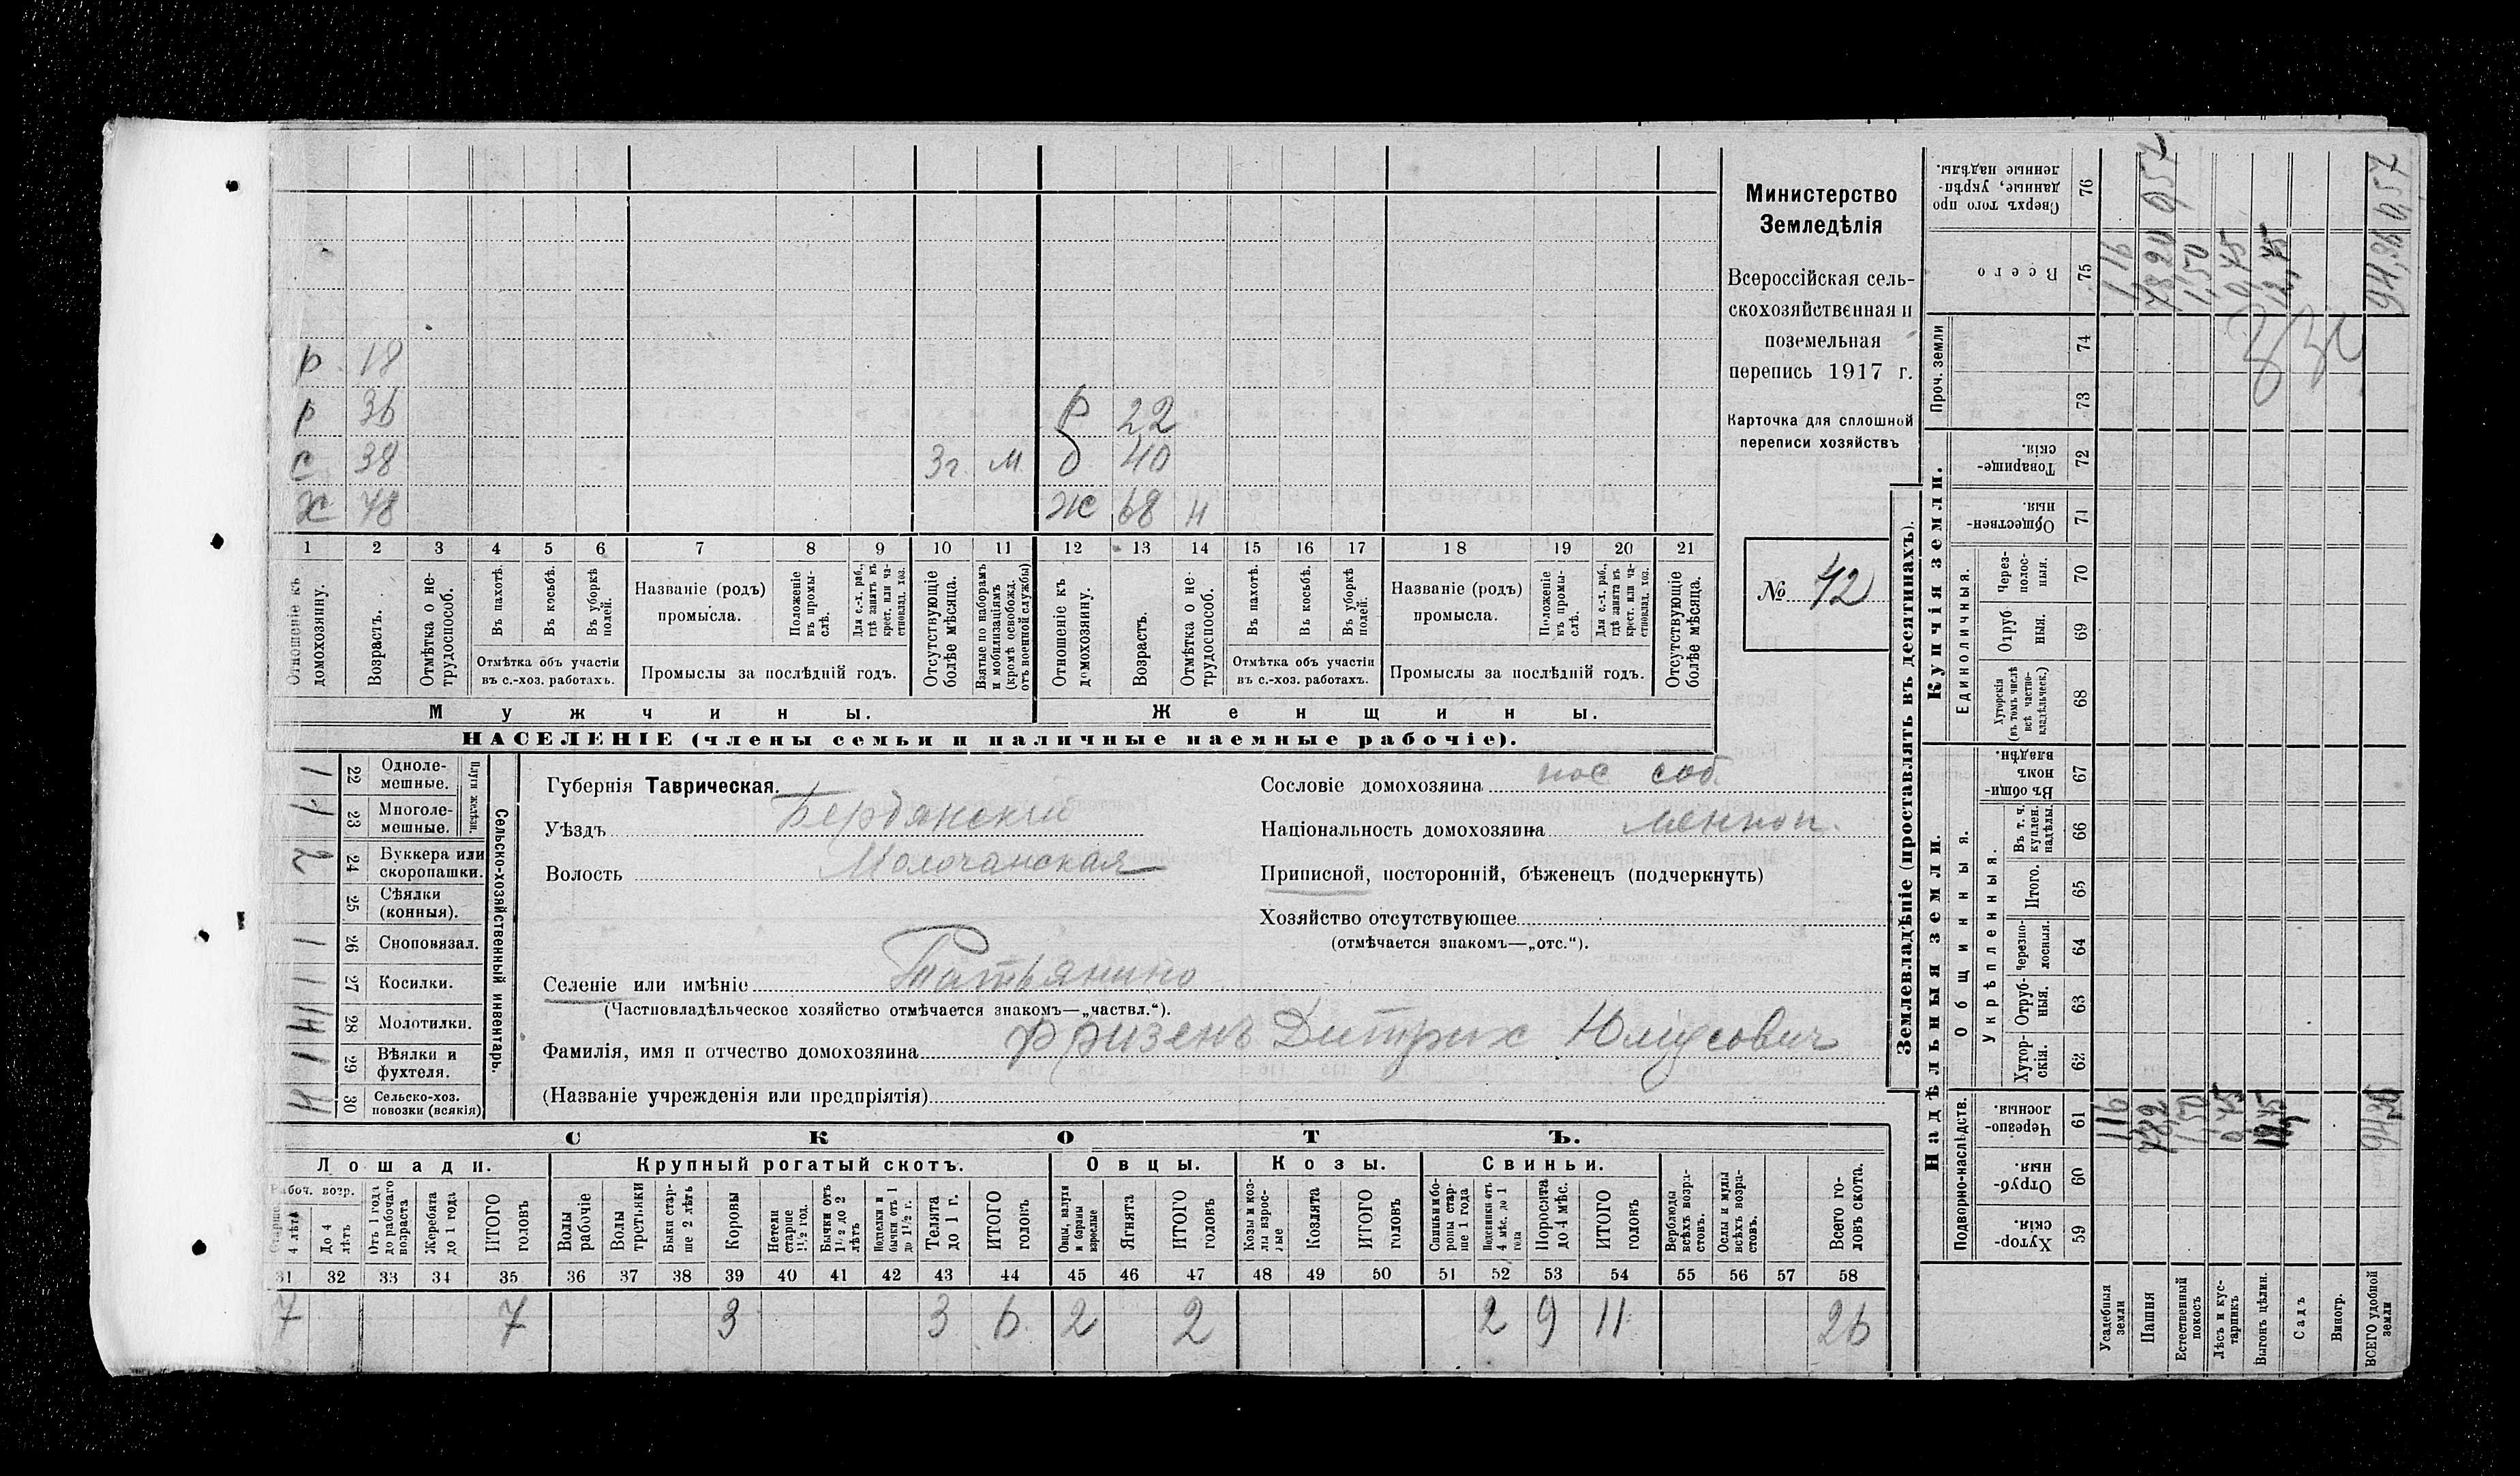 р 18
р 36 Р 22
с 38 3г. М д 40
Х 78 Ж 68 Н
1 2 3 4 5 6 7 8 9 10 11 12 13 14 15 16 17 18 19 20 21
Отношеніе къ домохозяину.
Возрастъ.
Отмѣтка о нетрудоспособ.
Въ пахотѣ.
Въ косьбѣ.
Въ уборкѣ полей.
Отмѣтка объ участіи въ с.-хоз. работахъ.
Названіе (родъ) промысла.
Положеніе въ промыслѣ.
Для с.-х. раб., гдѣ занятъ въ крест. или частновлад. хоз.
Промыслы за послѣдній годъ.
Отсутствующіе болѣе мѣсяца.
Взятые по наборамъ и мобилизаціямъ (кромѣ освобожд. отъ военной службы)
Отношеніе къ домохозяину.
Возрастъ.
Отмѣтка о нетрудоспособ.
Въ пахотѣ.
Въ косьбѣ.
Въ уборкѣ полей.
Отмѣтка объ участіи въ с.-хоз. работахъ.
Названіе (родъ) промысла.
Положеніе въ промыслѣ.
Для с.-х. раб., гдѣ занята въ крест. или частновлад. хоз.
Промыслы за послѣдній годъ.
Отсутствующіе болѣе мѣсяца.
Мужчины. Женщины.
НАСЕЛЕНІЕ (члены семьи и наличные наемные рабочіе).
Министерство
Земледѣлія
Всероссійская сель-
скохозяйственная и
поземельная
перепись 1917 г.
Карточка для сплошной
переписи хозяйствъ
№ 72
Сельско-хозяйственный инвентарь.
Плуги желѣзн.
22 Однолемешные. 1
23 Многолемешные. 1
24 Буккера или скоропашки. 2
25 Сѣялки (конныя).
26 Сноповязал. 1
27 Косилки. 1
28 Молотилки.
29 Вѣялки и фухтеля. 1
30 Сельско-хоз. повозки (всякія) 4
Губернія Таврическая.
Уѣздъ Бердянскій
Волость Молочанская
Селеніе или имѣніе Татьянино
(Частновладѣльческое хозяйство отмѣчается знакомъ—„частвл.“).
Фамилія, имя и отчество домохозяина Фризенъ Дитрих Юліусович
(Названіе учрежденія или предпріятія)
Сословіе домохозяина пос соб.
Національность домохозяина меннон.
Приписной, посторонній, бѣженецъ (подчеркнуть)
Хозяйство отсутствующее
(отмѣчается знакомъ—„отс.“).
СКОТЪ.
Лошади. Крупный рогатый скотъ. Овцы. Козы. Свиньи.
Рабоч. возр.
Старше 4 лѣтъ
До 4 лѣтъ
Отъ 1 года до рабочаго возраста
Жеребята до 1 года
ИТОГО головъ
Волы рабочіе
Волы третьяки
Быки старше 2 лѣтъ
Коровы
Нетели старше 1 1/2 год.
Бычки отъ 1 1/2 до 2 лѣтъ
Подтелки и бычки отъ 1 до 1 1/2 г.
Телята до 1 г.
ИТОГО головъ
Овцы, валухи и бараны взрослые
Ягнята
ИТОГО головъ
Козы и козлы взрослые
Козлята
ИТОГО головъ
Свиньи и бороны старше 1 года
Подсвинки отъ 4 мѣс. до 1 года
Поросята до 4 мѣс.
ИТОГО головъ
Верблюды всѣхъ возрастовъ.
Ослы и мулы всѣхъ возрастовъ.
Всего головъ скота.
31 32 33 34 35 36 37 38 39 40 41 42 43 44 45 46 47 48 49 50 51 52 53 54 55 56 57 58
7 7 3 3 6 2 2 2 9 11 26
Землевладѣніе (проставлять въ десятинахъ).
Надѣльныя земли. Купчія земли.
Подворно-наслѣдств.
Общинныя.
Укрѣпленныя.
Единоличныя.
Проч. земли
59 Хуторскія.
60 Отрубныя.
61 Черезполосныя.
62 Хуторскія.
63 Отрубныя.
64 Черезполосныя.
65 Итого.
66 Въ т. ч. куплен. надѣлы.
67 Въ общинномъ владѣн.
68 Хуторскія (въ томъ числѣ всѣ частновладѣльческ.)
69 Отрубныя.
70 Черезполосныя.
71 Общественныя.
72 Товарищескія.
73
74
75 Всего
76 Сверхъ того проданные, укрѣпленные надѣлы.
Усадебныя земли 1 16 1 16
Пашня 7892 7892 0 57
Естественный покосъ 1 50 1,50
Лѣсъ и кустарникъ 0 45 0,45
Выгонъ цѣлин. 12,45
Садъ
Виногр.
ВСЕГО удобной земли 94,36 0,57